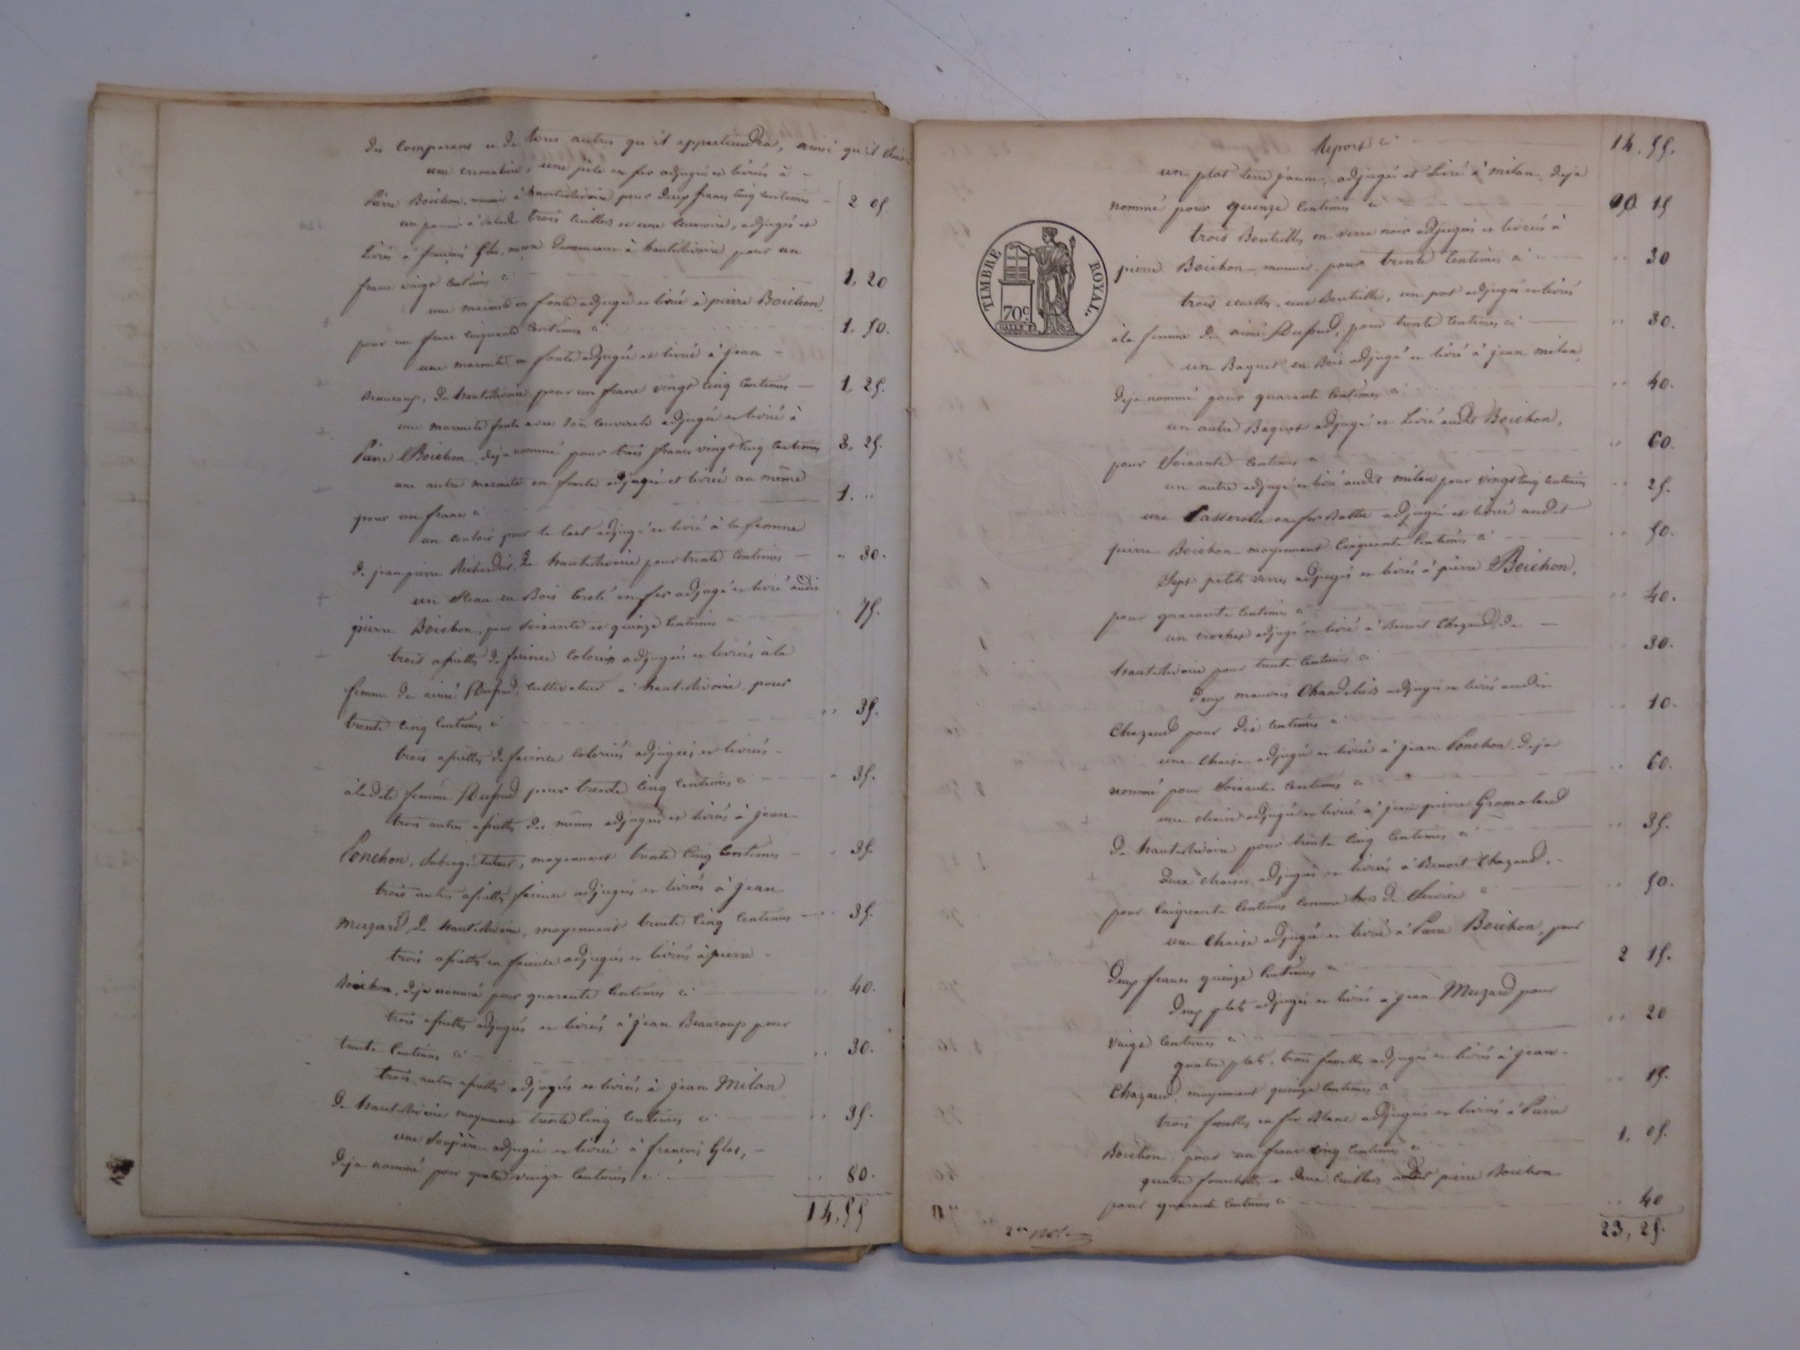 des comparans et de tous autres qu'il appartiendra, ainsi qu'il
une cremalière, une pèle en fer adjugés et livrés à
Pierre Boichon, meunier à hauterivoire pour deux francs cinq centimes 2 05.
un panier à salade trois cuillers et une, adjugés et
livrés à françois Glas, maçon demeurant à hauterivoire pour un
franc vingt centimes ci 1, 20
une marmite en fonte adjugée et livrée à pierre Boichon,
pour un franc cinquante centimes ci 1. 50.
une marmite en fonte adjugée et livrée à jean
Beaucoup, de hauterivoire pour un franc vingt cinq centimes 1, 25.
une marmite fonte avec son couvercle adjugée et livrée à
Pierre Boichon, deja nommé pour trois francs vingt cinq centimes 3, 25.
une autre marmite en fonte adjugée et livrée au même
pour un franc ci 1. "
un couloir pour le lait adjugé et livré à la femme
de jean pierre de hauterivoire pour trente centimes " 30.
un seau en Bois cerclé en fer adjugé et livré audit
pierre Boichon, pour soixante et quinze centimes ci . 75.
trois assiettes de faience coloriés adjugées et livrées à la
femme de aimé Dufoud, cultivateur à hauterivoire, pour
trente cinq centimes ci " 35.
trois assiettes de faience coloriés adjugées et livrées
à ladite femme Dufoud pour trente cinq centimes ci " 35.
trois autres assiettes des mêmes adjugées et livrés à jean
Ponchon, subrogé tuteur, moyennant trente cinq centimes " 35.
trois autres assiettes faience adjugées et livrés à jean
Muzard de hauterivoire, moyennant trente cinq centimes " 35.
trois assiettes en faience adjugées et livrés à pierre
Boichon, deja nommé pour quarante centimes ci " 40.
trois assiettes adjugées et livrés à jean Beaucoup pour
trente centimes ci " 30.
trois autres assiettes adjugés et livrés à jean Milan
de hauterivoire moyennant trente cinq centimes ci " 35.
une soupière adjugée et livrée à françois Glas,
deja nommé pour quatre vingt centimes ci " 80.
14,55
Report ci 14. 55.
un plat terre jaune, adjugé et livré à milan, deja
nommé pour quinze centimes ci 15
trois Bouteilles en verre noir adjugées et livrées à
pierre Boichon meunier, pour trente centimes ci " 30
trois, une Bouteille, un pot adjugés et livrés
à la femme de aimé Dufoud, pour trente centimes ci " 30.
un Baquet en Bois adjugé et livré à jean milan,
deja nommé pour quarante centimes ci " 40.
un autre Baquet adjugé et livré audit Boichon,
pour soixante centimes ci " 60.
un autre adjugé et livré audit milan pour vingt cinq centimes " 25.
une Casserolle en fer Battu adjugée et livrée audit
pierre Boichon moyennant cinquante centimes ci " 50.
sept petits verres adjugés et livrés à pierre Boichon,
pour quarante centimes ci " 40.
un crochet adjugé et livré à Benoit Chazaud, de
hauterivoire pour trente centimes ci " 30.
deux mauvais Chandeliers adjugés et livrés audit
Chazaud pour dix centimes ci " 10.
une chaise adjugée et livrée à jean Ponchon deja
nommé pour soixante centimes ci " 60.
une chaise adjugée et livrée à jean pierre
de hauterivoire pour trente cinq centimes ci " 35.
Deux chaises adjugées et livrées à Benoit Chazaud,
pour cinquante centimes comme hors de service ci " 50.
une chaise adjugée et livrée à Pierre Boichon, pour
deux francs quinze centimes ci 2 15.
deux plats adjugés et livrés à jean Muzard pour
vingt centimes ci " 20
quatre plats, trois adjugés et livrés à jean
Chazaud, moyennant quinze centimes ci " 15.
trois en fer Blanc adjugées et livrés à Pierre
Boichon, pour un franc cinq centimes ci 1, 05.
quatre fourchettes et deux cuillers audit pierre Boichon
pour quarante centimes ci " 40
23, 25.
TIMBRE ROYAL.
70c.